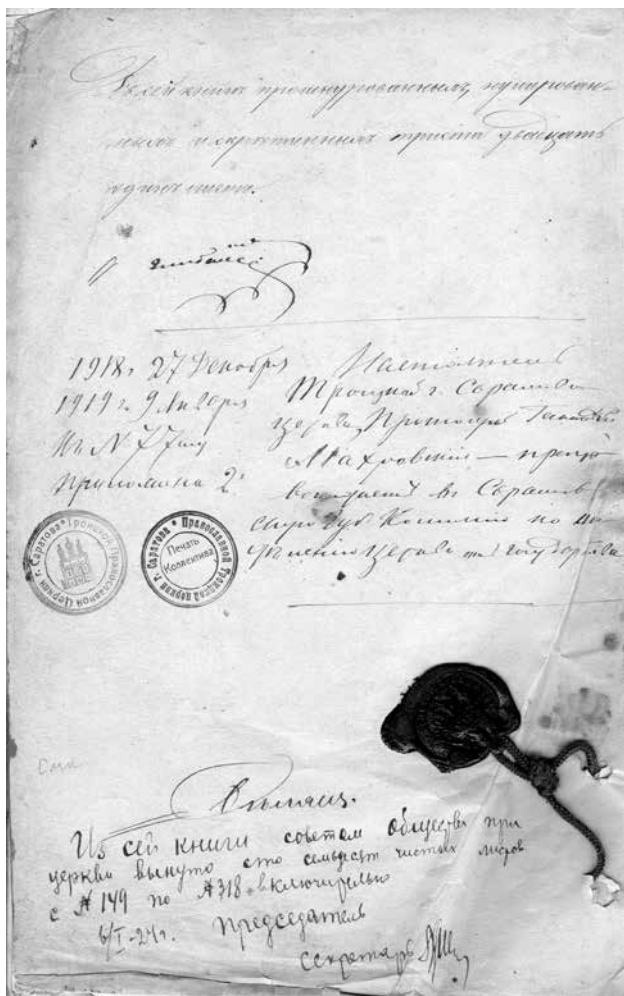 Въ сей книгѣ прошнурованныхъ, нумерован-
ныхъ и скрѣпленныхъ триста двадцать
одинъ листъ.
1918 г. 27 Декабря
1919 г. 9 Января
За № 77
Приложена 2
Настоятель
Троицкой г. Саратова
церкви, Протоіерей
препро
вождаетъ въ Саратов
скую Губ. Комиссію по от
дѣленію Церкви отъ государства
г. Саратова * Троицкой Православной Церкви
Православной Троицкой церкви г. Саратова *
Печать
Коллектива
Из сей книги советом общества при
церкви вынуто сто семьдесят чистых листов
с № 149 по № 318 включительно
6/I-24 г. Председатель
секретарь